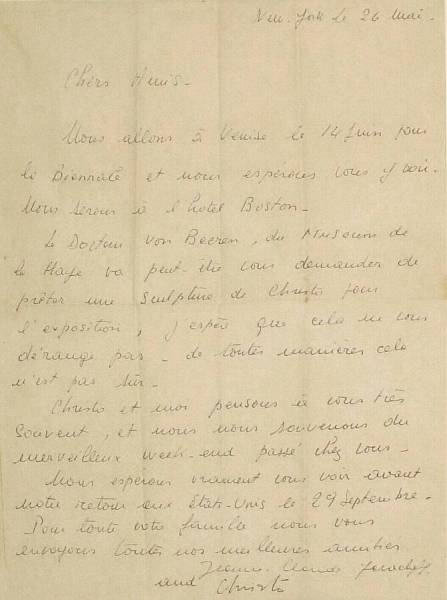 New-York le 26 Mai.
Chers Amis-
Nous allons à Venise le 14 Juin pour
la Biennale et nous espérons vous y voir.
Nous serons à l'hotel Boston-
Le Docteur von Beeren, du Museum de
la Haye va peut-être vous demander de
prêter une sculpture de Christo pour
l'exposition, j'espère que cela ne vous
dérange pas - de toutes manières cela
n'est pas sûr-
Christo et moi pensons à vous très
souvent, et nous nous souvenons du
merveilleux week-end passé chez vous-
Nous espérons vraiment vous voir avant
notre retour aux États-Unis le 29 Septembre-
Pour toute votre famille nous vous
envoyons toutes nos meilleures amitiés
Jeanne-Claude Javacheff
and Christo